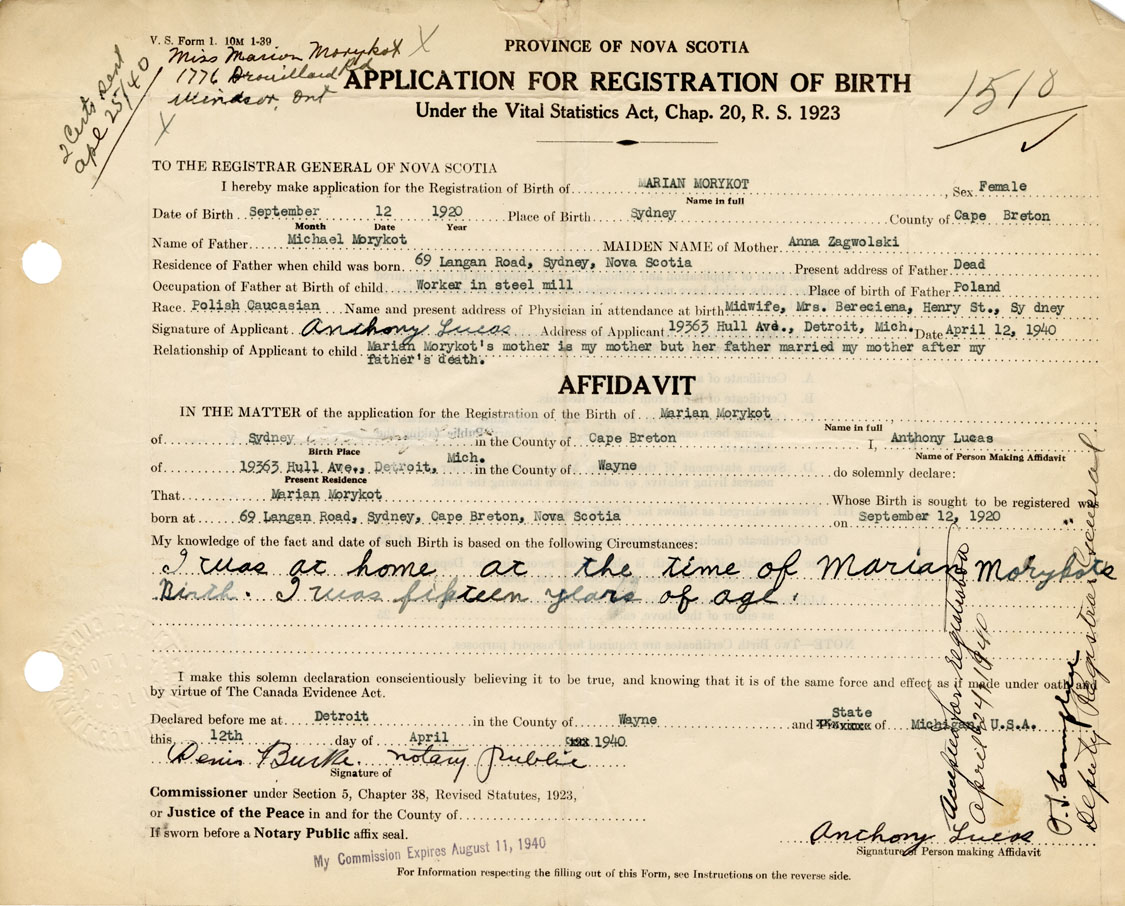 V. S. Form 1. 10M 1-39
Miss Marion Morykot X
1776 Drouillard Rd
Windsor, Ont
X
2 Certs Sent
Apl 25/40
PROVINCE OF NOVA SCOTIA
APPLICATION FOR REGISTRATION OF BIRTH
Under the Vital Statistics Act, Chap. 20, R. S. 1923
1518
TO THE REGISTRAR GENERAL OF NOVA SCOTIA
I hereby make application for the Registration of Birth of MARIAN MORYKOT, Sex Female
Name in full
Date of Birth September 12 1920 Place of Birth Sydney County of Cape Breton
Month Date Year
Name of Father Michael Morykot MAIDEN NAME of Mother Anna Zagwolski
Residence of Father when child was born 69 Langan Road, Sydney, Nova Scotia Present address of Father Dead
Occupation of Father at Birth of child Worker in steel mill Place of birth of Father Poland
Race Polish Caucasian Name and present address of Physician in attendance at birth Midwife, Mrs. Bereciena, Henry St., Sy dney
Signature of Applicant Anthony Lucas Address of Applicant 19363 Hull Ave., Detroit, Mich. Date April 12, 1940
Relationship of Applicant to child Marian Morykot's mother is my mother but her father married my mother after my
father's death.
AFFIDAVIT
IN THE MATTER of the application for the Registration of the Birth of Marian Morykot
Name in full
of Sydney in the County of Cape Breton I, Anthony Lucas
Birth Place Name of Person Making Affidavit
of 19363 Hull Ave., Detroit, Mich. in the County of Wayne do solemnly declare:
Present Residence
That Marian Morykot Whose Birth is sought to be registered was
born at 69 Langan Road, Sydney, Cape Breton, Nova Scotia on September 12, 1920
My knowledge of the fact and date of such Birth is based on the following Circumstances:
I was at home at the time of Marian Morykots
Birth. I was fifteen years of age.
I make this solemn declaration conscientiously believing it to be true, and knowing that it is of the same force and effect as if made under oath and
by virtue of The Canada Evidence Act.
Declared before me at Detroit in the County of Wayne and Province State of Michigan, U.S.A.
this 12th day of April 1940.
Denis Burke. notary public
Signature of
Commissioner under Section 5, Chapter 38, Revised Statutes, 1923,
or Justice of the Peace in and for the County of
If sworn before a Notary Public affix seal.
My Commission Expires August 11, 1940
Anthony Lucas
Signature of Person making Affidavit
For Information respecting the filling out of this Form, see Instructions on the reverse side.
Accepted for registration
April 24 1940
Deputy Registrar General